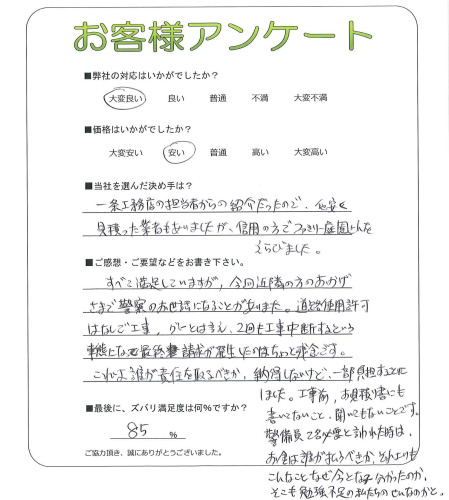 お客様アンケート
■弊社の対応はいかがでしたか?
大変良い 良い 普通 不満 大変不満
■価格はいかがでしたか?
大変安い 安い 普通 高い 大変高い
■当社を選んだ決め手は?
一条工務店の担当者からの紹介だったので、他安く
見積った業者もありましたが、信用の方でファミリー庭園さんを
えらびました。
■ご感想・ご要望などをお書き下さい。
すべて満足していますが、今回近隣の方のおかげ
さまで警察のお世話になることがありました。道路使用許可
はなしで工事、グレーとは言え、2回も工事中断するという
事態になって最終 請求が発生したのはちょっと残念です。
これは誰が責任を取るべきか、納得しないけど、一部負担することに
しました。工事前、お見積り書にも
書いてないこと、聞いてもないことです。
警備員で必要と言われた時は、
お金は誰が払うべきか、それよりも
こんなことなぜ今となって分かったのか、
そこも勉強不足の私たちのせいなのかと。
■最後に、ズバリ満足度は何%ですか?
85 %
ご協力頂き、誠にありがとうございました。